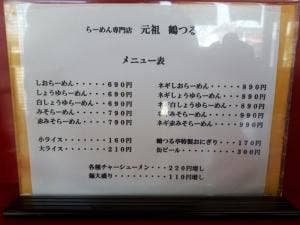 らーめん専門店 元祖 鶴つる
メニュー表
しおらーめん・・・・・・690円
しょうゆらーめん・・・・690円
白しょうゆらーめん・・・690円
みそらーめん・・・・・・790円
赤みそらーめん・・・・・790円
ネギしおらーめん・・・・890円
ネギしょうゆらーめん・・890円
しょうゆらーめん・890円
みそらーめん・・・990円
ネギ赤みそらーめん・・・990円
小ライス・・・・・・・・160円
大ライス・・・・・・・・210円
鶴つる亭特製おにぎり・・・170円
缶ビール・・・・・・・・・300円
各種チャーシューメン・・・220円増し
麺大盛り・・・・・・・・・110円増し